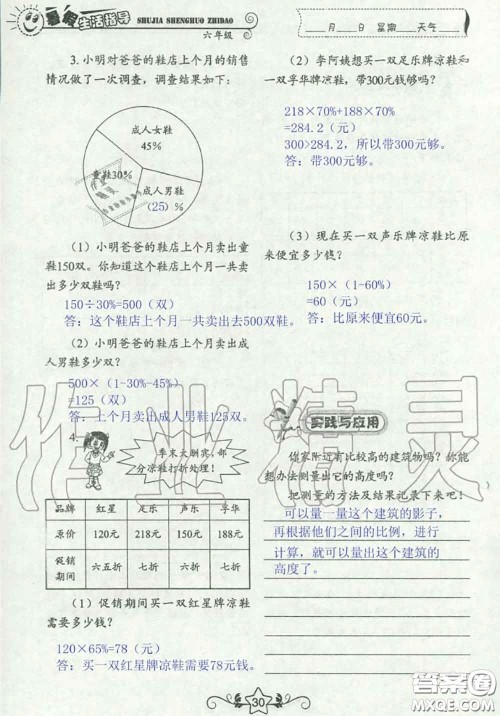 暑假生活指导
SHUJIA SHENGHUO ZHIDAO
六年级
月 日 星期 天气
3.小明对爸爸的鞋店上个月的销售
情况做了一次调查,调查结果如下:
成人女鞋
45%
童鞋30%
成人男鞋
(25)%
(1)小明爸爸的鞋店上个月卖出童
鞋150双。你知道这个鞋店上个月一共卖
出多少双鞋吗?
150÷30%=500(双)
答:这个鞋店上个月一共卖出去500双鞋。
(2)小明爸爸的鞋店上个月卖出成
人男鞋多少双?
500×(1-30%-45%)
=125(双)
答:上个月卖出成人男鞋125双。
4.
季末大酬宾,部
分凉鞋打折处理!
品牌 红星 足乐 声乐 孚华
原价 120元 218元 150元 188元
促销期间 六五折 七折 六折 七折
(1)促销期间买一双红星牌凉鞋
需要多少钱?
120×65%=78(元)
答:买一双红星牌凉鞋需要78元钱。
(2)李阿姨想买一双足乐牌凉鞋和
一双孚华牌凉鞋,带300元钱够吗?
218×70%+188×70%
=284.2(元)
300>284.2,所以带300元够。
答:带300元够。
(3)现在买一双声乐牌凉鞋比原
来便宜多少钱?
150×(1-60%)
=60(元)
答:比原来便宜60元。
实践与应用
你家附近有比较高的建筑物吗?你能
想办法测量出它的高度吗?
把测量的方法及结果记录下来吧!
可以量一量这个建筑的影子,
再根据他们之间的比例,进行
计算,就可以量出这个建筑的
高度了。
30
作业精灵
答案圈
MXQE.COM